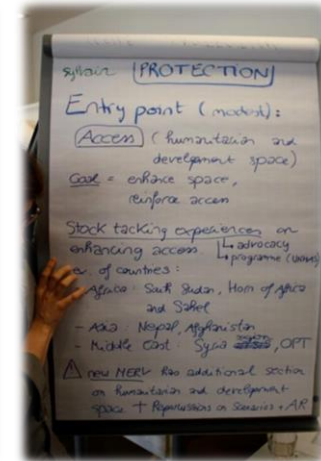 sylvain PROTECTION
Entry point (modest):
Access (humanitarian and
development space)
Goal = enhance space,
reinforce access
Stock tacking experiences on
enhancing access
advocacy
programme
ex. of countries:
- Africa: South Sudan, Horn of Africa
and Sahel
- Asia: Nepal, Afghanistan
- Middle East: Syria, OPT
new MERV has additional section
on humanitarian and development
space + Repercussions on Scenarios + AR